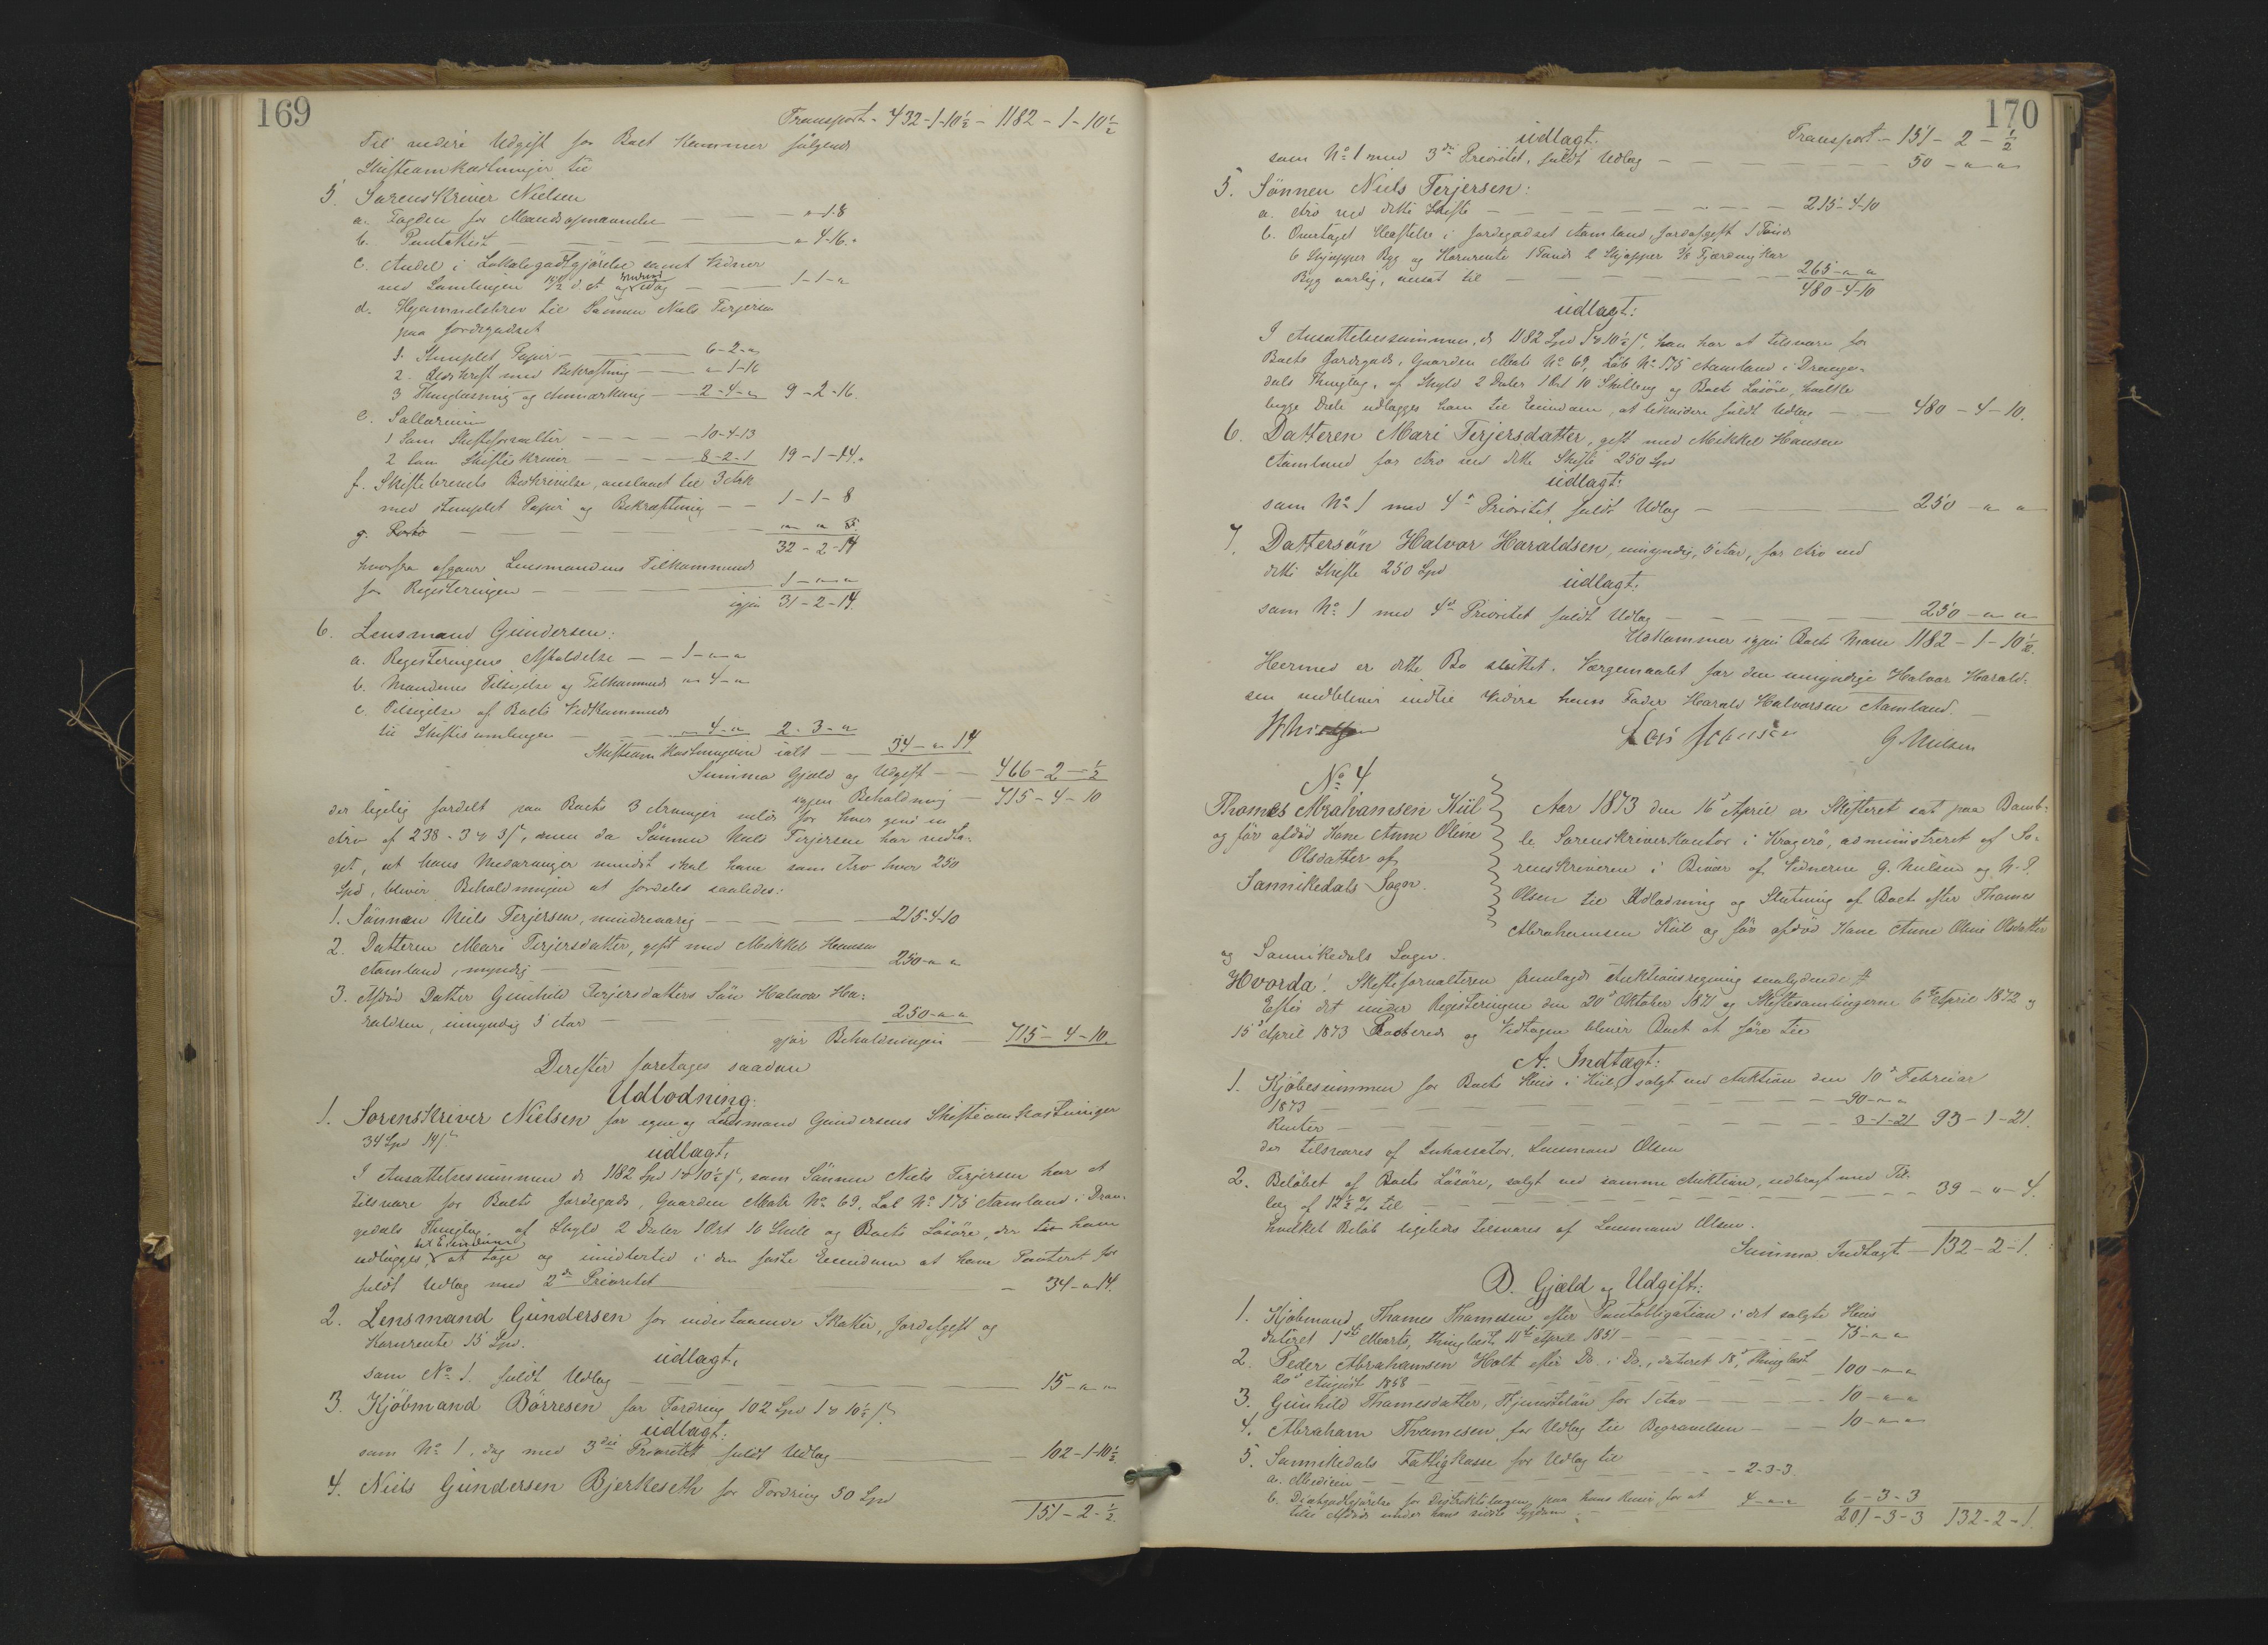 169
Transport - 432-1-10½ - 1182-1-10½
Til videre Udgift for Boet kommer følgende
Skifteomkostninger til
5. Sorenskriver Nielsen
a. Fogden for Mandsopnævnelse — — „-1-8
b. Pantattest — — „-4-16.
c. Andel i Lokalegodtgjørelse samt Vidner
ved Samlingen d. og idag — — 1-1-„
d. Hjemmelsbrev til Sønnen Niels Terjersen
paa Jordegodset
1. Stemplet Papir — — 6-2-„
2. Udskrift med Bekræftning — — „-1-16
3 Thinglæsning og Anmærkning — 2-4-„ 9-2-16.
e. Sallarium
1 Som Skifteforvalter — — 10-4-13
2 som Skifteskriver — — 8-2-1 19-1-14.
f. Skiftebrevets Beskrivelse, anslaaet til 3 Ark
med stemplet Papir og Bekræftning — — 1-1-8
g. Porto — —
32-2-14
hvorfra afgaar Lensmandens Tilkommende
for Registeringen — — 1-„-„
igjen 31-2-14.
6. Lensmand Gundersen:
a. Registeringens Afholdelse — — 1-„-„
b. Mændenes Tilsigelse og Tilkommende „-4-„
c. Tilsigelse af Boets Vedkommende
til Skiftesamlingen — — „-4-„ 2-3-„
Skifteomkostningerne ialt — — 34-„-14
Summa Gjæld og Udgift — — 466-2-½
igjen Beholdning — 715-4-10
der ligelig fordelt paa Boets 3 Arvinger vilde for hver give en
Arv af 238-3 3ß, men da Sønnen Niels Terjersen har vedta-
get, at hans Medarvinger mindst skal have som Arv hver 250
Spd, bliver Beholdningen at fordeles saaledes:
1. Sønnen Niels Terjersen, mindreaarig — — 215-4-10
2. Datteren Mari Terjersdatter, gift med Mikkel Hansen
Aamland, myndig — — 250-„-„
3. Afdød Datter Gunhild Terjersdatters Søn Halvor Ha-
raldsen, umyndig 5 Aar — — 250-„-„
gjør Beholdningen — 715-4-10.
Derefter foretages saadan
Udlodning.
1. Sorenskriver Nielsen for egne og Lensmand Gundersens Skifteomkostninger
34 Spd 14ß.
udlagt:
I Ansættelsessummen de 1182 Spd 1 10½ß, som Sønnen Niels Terjersen har at
tilsvare for Boets Jordegods, Gaarden Matr No 69, Løb No 175 Aamland i Dran-
gedals Thinglag af Skyld 2 Daler 1 Ort 10 Skill og Boets Løsøre, der ham
til Eiendom
udlægges, at tage og imidlertid i den faste Eiendom at have Panteret for
fuldt Udlæg med 2den Prioritet — 34-„-14.
2. Lensmand Gundersen for indestaaende Skatter, Jordafgift og
Kornrente 15 Spd.
udlagt,
som No 1. fuldt Udlæg — — 15-„-„
3. Kjøbmand Børresen for Fordring 102 Spd 1 10½ß
udlagt:
som No 1, dog med 3die Prioritet fuldt Udlæg — — 102-1-10½
4. Niels Gundersen Bjerkeseth for Fordring 50 Spd
151-2-½.
170
Transport — 151-2-½
udlagt.
som No 1 med 3die Prioritet, fuldt Udlæg — — 50-„-„
5. Sønnen Niels Terjersen:
a. Arv ved dette Skifte — — 215-4-10
b. Overtaget Heftelse i Jordegodset Aamland, Jordafgift 1 Tønde
6 Skjepper Byg og Kornrente 1 Tønde 2 Skjepper ⅜ Fjerdingkar
Byg aarlig, ansat til — — 265-„-„
480-4-10
udlagt:
I Ansættelsessummen, de 1182 Spd 1 10½ß, han har at tilsvare for
Boets Jordegods, Gaarden Matr No 69, Løb No 175 Aamland i Drange-
dals Thinglag, af Skyld 2 Daler 1 Ort 10 Skilling og Boets Løsøre, hvilke
begge Dele udlægges ham til Eiendom, at likvidere fuldt Udlæg — — 480-4-10.
6. Datteren Mari Terjersdatter, gift med Mikkel Hansen
Aamland for Arv ved dette Skifte 250 Spd
udlagt:
som No 1 med 4de Prioritet fuldt Udlæg — — 250-„-„
7. Dattersøn Halvor Haraldsen, umyndig, 5 Aar, for Arv ved
dette Skifte 250 Spd
udlagt:
som No 1 med 4de Prioritet fuldt Udlæg — — 250-„-„
Udkommer igjen Boets Masse 1182-1-10½.
Hermed er dette Bo sluttet. Værgemaalet for den umyndige Halvor Harald-
sen vedbliver indtil Videre hans Fader Harald Halvorsen Aamland.
G. Nielsen
No 4
Thomas Abrahamsen Kiil
og før afdød Kone Anne Oline
Olsdatter af
Sannikedals Sogn.
Aar 1873 den 16de April er Skifteret sat paa Bamb-
le Sorenskriverkontor i Kragerø, administreret af So-
renskriveren i Bivær af Vidnerne G. Nielsen og N. P.
Olsen til Udlodning og Slutning af Boet efter Thomas
Abrahamsen Kiil og før afdød Kone Anne Oline Olsdatter
og Sannikedals Sogn.
Hvorda! Skifteforvalteren fremlagde Auktionsregning saalydende #
Efter det under Registeringen den 20de Oktober 1871 og Skiftesamlingerne 6te April 1872 og
15de April 1873 Passerede og Vedtagne bliver Boet at føre til
A. Indtægt:
1. Kjøbesummen for Boets Huus i Kiil, solgt ved Auktion den 10de Februar
1873 — — 90-„-„
Renter — — 3-1-21 93-1-21.
der tilsvares af Inkassator, Lensmand Olsen
2. Beløbet af Boets Løsøre, solgt ved samme Auktion, udbragt med Til-
læg af 12½ % til — — 39-„-4.
hvilket Beløb ligeledes tilsvares af Lensmand Olsen.
Summa Indtægt — 132-2-1.
B. Gjæld og Udgift:
1. Kjøbmand Thomas Thomesen efter Pantobligation i det solgte Huus
dateret 1ste Marts, thinglæst 11te April 1851 — — 75-„-„
2. Peder Abrahamsen Holt efter Do. i Do., dateret 18, thinglæst
20de August 1858 — — 100-„-„
3. Gunhild Thomesdatter, Tjenesteløn for 1 Aar — — 10-„-„
4. Abraham Thomesen for Udlæg til Begravelsen — — 10-„-„
5. Sannikedals Fattigkasse for Udlæg til
a. Medicin — — 2-3-3
b. Diætgodtgjørelse for Distriktslægen paa hans Reise for at 4-„-„ 6-3-3
tilse Afdøde under hans sidste Sygdom 201-3-3 132-2-1.